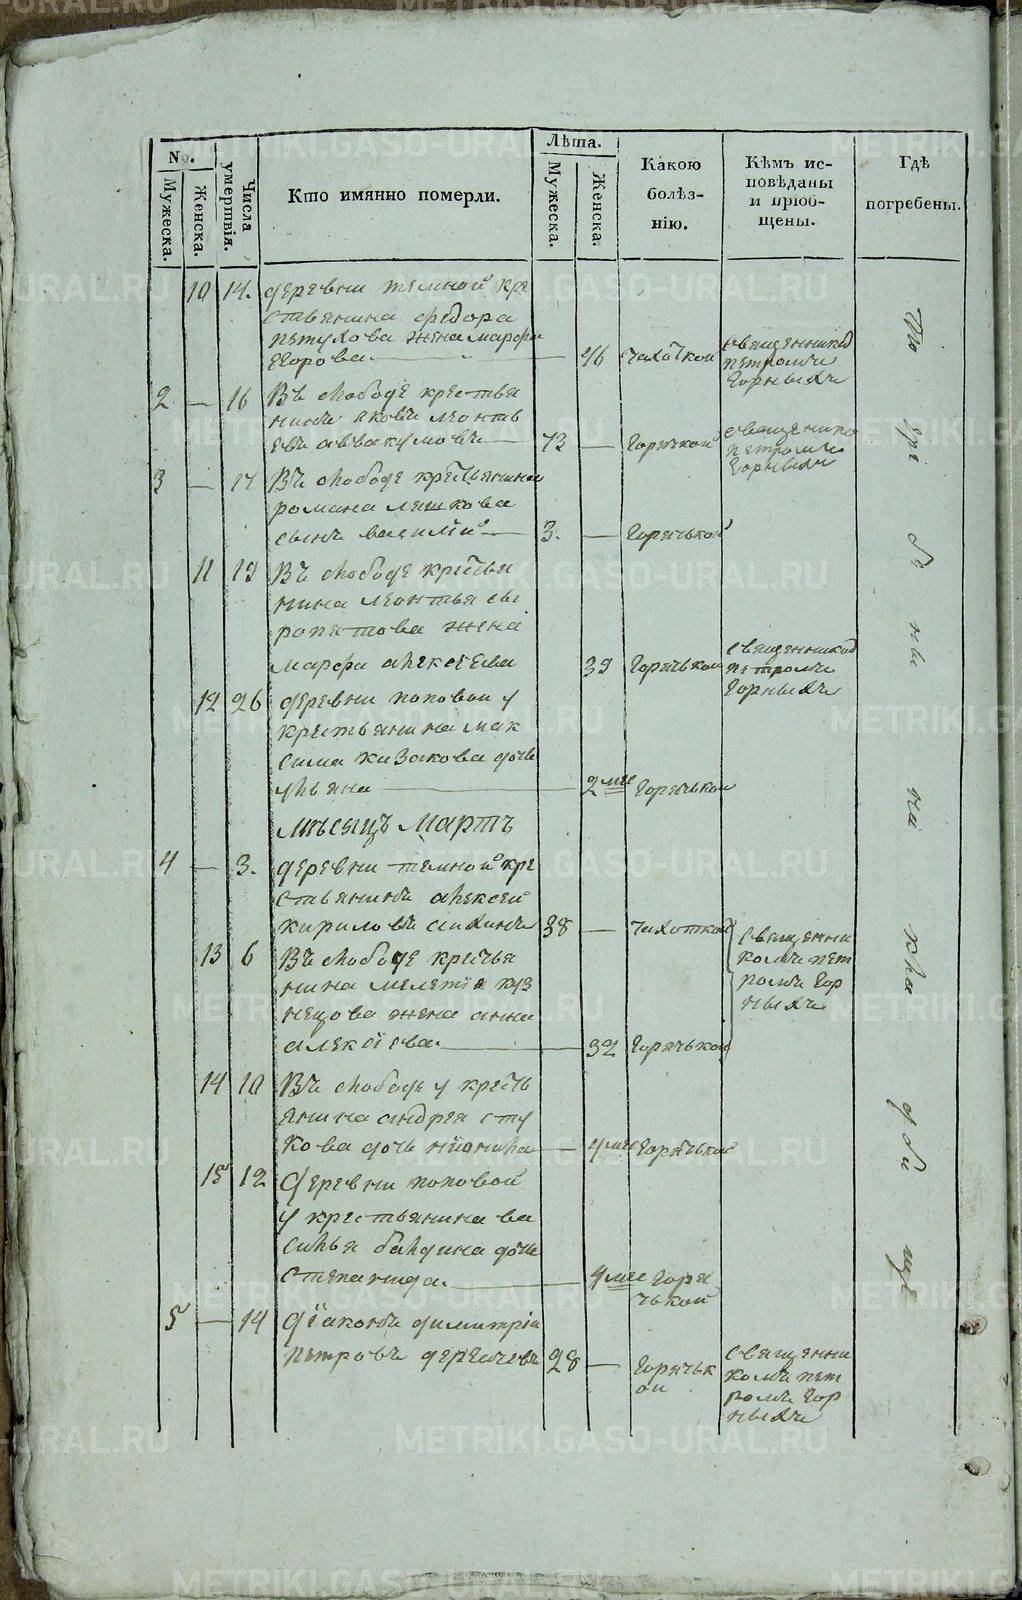 No.
Мужеска.
Женска.
Числа умертвія.
Кто имянно померли.
Лѣта.
Мужеска.
Женска.
Какою болѣзнію.
Кѣмъ исповѣданы и пріобщены.
Гдѣ погребены.
10 14. деревни темной кре
стьянина федора
петухова жена марфа
егорова. 46 чахоткой священникомъ
петромъ
горныхъ
2 — 16 Въ слободе крестья
нинъ яковъ леонть
евъ аввакумовъ — 73 — горячкой священнико
петромъ
горныхъ
3 — 17 Въ слободе крестьянина
романа
сынъ василій — 3. — горячькой
11 19 Въ слободе крестья
нина леонтья сы
ропятова жена
марфа алексеева 39 горячькой священникомъ
петромъ
горныхъ
12 26 деревни поповой у
крестьянина мак
сима казакова дочь
ульяна — 2 мце горячькой
Месяцъ Мартъ
4 — 3. деревни темной кре
стьянинъ алексей
кириловъ 38 — чахоткой
13 6 Въ слободе крестья
нина мелетія куз
нецова жена анна
алексіева. — 32 горячькой
священни
комъ пет
ромъ гор
ныхъ
14 10 Въ слободе у кресть
янина андрея сту
кова дочь — 4 мце горячькой
15 12 деревни поповой
у крестьянина ва
силья балдина дочь
степанида. — 4 мце горя
чькой
5 — 14 діаконъ димитрій
петровъ 28 — горячьк
ой
священни
комъ пет
ромъ гор
ныхъ
на кла д би ще